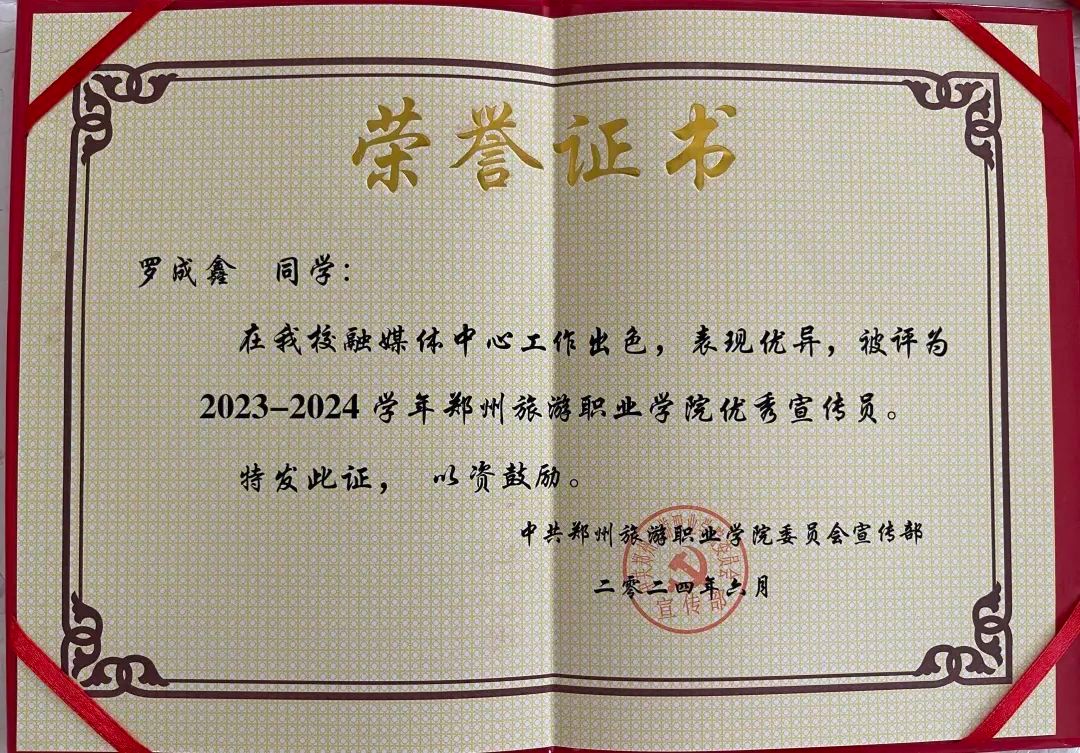 荣誉证书
罗成鑫 同学：
在我校融媒体中心工作出色，表现优异，被评为
2023-2024 学年郑州旅游职业学院优秀宣传员。
特发此证， 以资鼓励。
中共郑州旅游职业学院委员会宣传部
二零二四年六月
中共郑州旅游职业学院委员会
宣传部